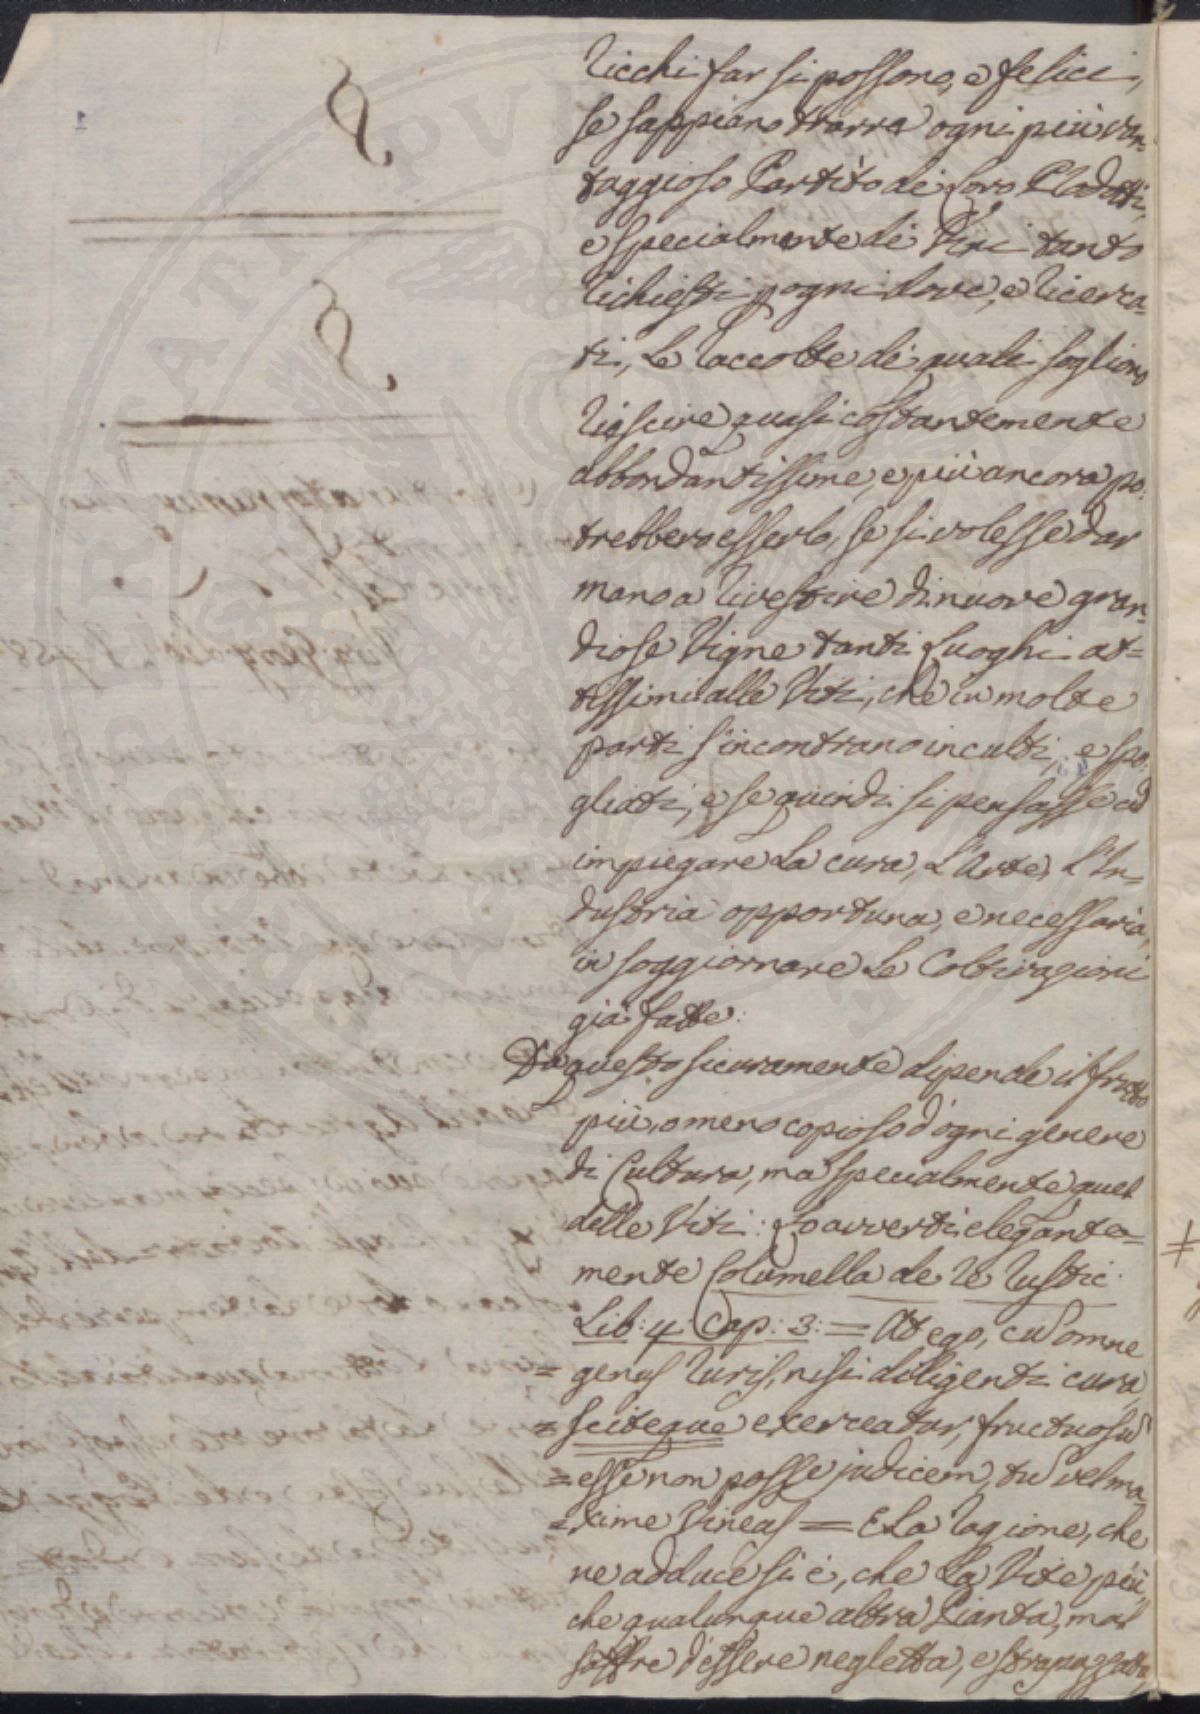 Ricchi far si possono, e felici,
se sappiano trarre ogni più van-
taggioso Partito dei loro Prodotti,
e specialmente dei Vini tanto
richiesti p ogni dove, e ricerca-
ti, Le raccolte dei quali sogliono
riescire quasi costantemente
abbondantissime, e più ancora po-
trebbero esserlo, se si volesse dar
mano a rivestire di nuove gran-
diose Vigne tanti Luoghi at=
tissimi alle Viti, che in molte
parti s'incontrano inculti, e spo-
gliati, e se quindi si pensasse ad
impiegare La cura, L'Arte, L'In-
dustria opportuna, e necessaria,
in soggiornare Le Coltivagioni
già fatte:
Da questo sicuramente dipende il frutto
più, o meno copioso d'ogni genere
di Cultura, ma specialmente quel
delle Viti: Lo avvertì elegante=
mente Columella de Re Rustic:
Lib: 4: Cap: 3: = At ego, cū omne
= genus Ruris, nisi diligenti cura,
= sciteque exerceatur, fructuosū
= esse non posse judicem, tū vel ma-
= xime Vineas = E La ragione, che
ne adduce si è, che La Vite, più,
che qualunque altra Pianta, mal
soffre d'essere negletta, e strapazzata,